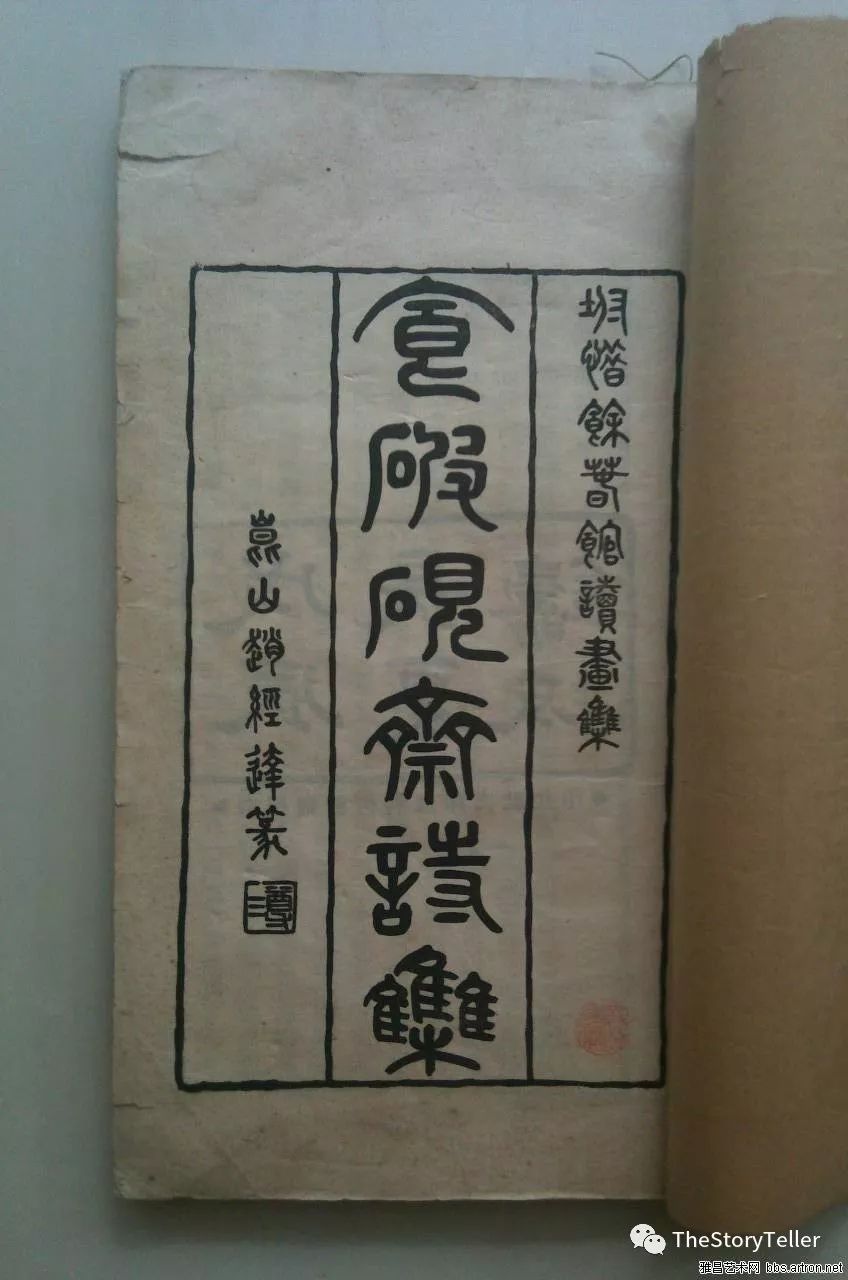 坿惜餘春館讀畫集
食破硯齋詩集
崑山趙經達篆
TheStoryTeller
雅昌艺术网 bbs.artron.net